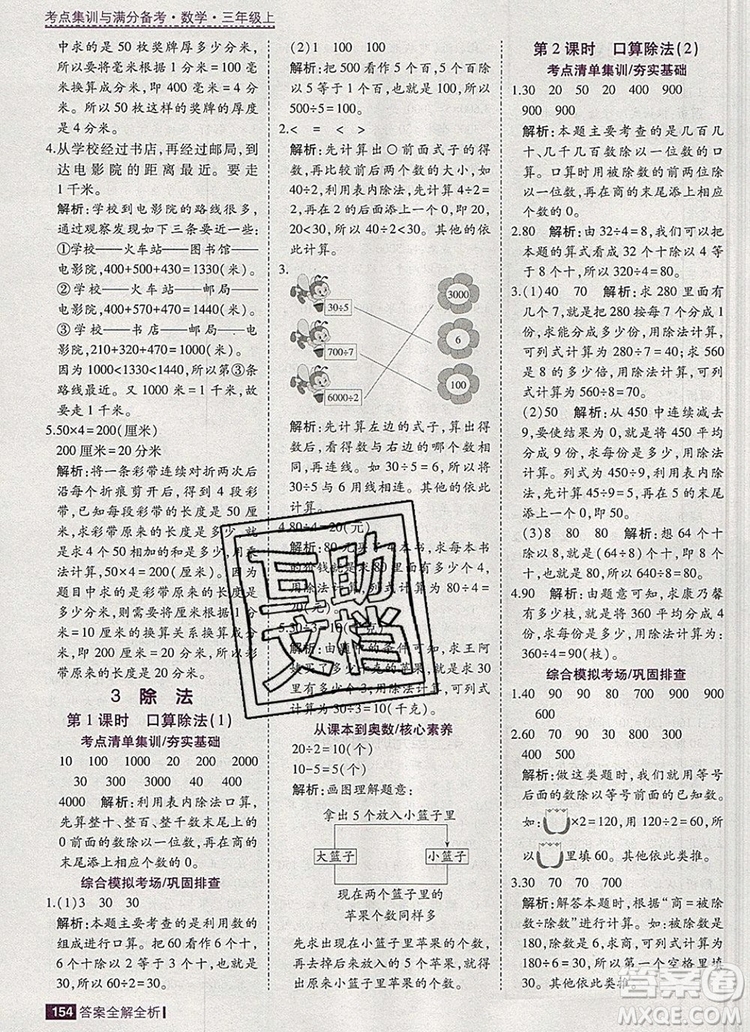 考点集训与满分备考·数学·三年级上
中求的是 50 块奖牌厚多少分米,
所以要将毫米根据 1 分米=100 毫
米换算成分米。这块奖牌的厚度
是 5 分米。
4.从学校经过书店,再经过邮局,到
达电影院的距离最近。要走
1 千米。
解析:学校到电影院的路线很多,
通过观察发现如下三条要近一些:
①学校——火车站——图书馆——
电影院,400+500+430=1330(米)。
②学校——火车站——邮局——
电影院,400+640+400=1440(米)。
③学校——书店——邮局——电
影院,210+320+470=1000(米)。
因为 1000<1330<1440,所以第③条
路线最近。又 1000 米=1 千米,所
以要走 1 千米。
5.50×4=200(厘米)
200 厘米=20 分米
解析:将一条彩带连续对折两次后
沿每个折痕剪开得到 4 段。这
4 段彩带的长度相等,每段长 50 厘
米,求彩带原来的长度用乘法计
算。彩带原来的长度是 50×4=
200(厘米)。
题目中求的是彩带原来的长度是
多少分米,所以要根据 1 分米=
10 厘米的换算关系换算成分米。
彩带原来的长度是 20 分米。
3 除 法
第 1 课时 口算除法(1)
考点清单集训/夯实基础
10 100 1000 20 200 2000
30 300 3000 40 400
4000 解析:利用表内除法口算,
先算整十、整百、整千数末尾上的
0 前面的数除以一位数,再在得数
的末尾添上相应个数的 0。
综合模拟考场/巩固排查
1.(1)3 30 30
解析:本题主要考查的是利用数的
组成进行口算。把 90 看作 9 个
十,9 个十除以 3 等于 3 个十,所以
90÷3=30。
(2)5 1 100
解析:把 500 看作 5 个百,5 个百除
以 5 等于 1 个百,1 个百是 100,所以
500÷5=100。
2.< = < >
解析:先计算出 ○ 前面式子的得
数,再比较前后两个数的大小,如
40÷2,利用表内除法,先计算 4÷2=
2,再在 2 的末尾添上 1 个 0,即 20,
因为 20<30,所以 40÷2<30。其他
依此计算。
3.
30÷5 3000
700÷7 6
6000÷2 100
解析:先计算左边的式子,计算出
得数后,看与右边的哪个数相等,
再连线。如 30÷5=6,所以把
30÷5 与 6 用线连起来。其他依此
计算。
4.80÷4=20(元)
30÷6。
(千克)。
从课本到奥数/核心素养
20÷2=10(个)
10-5=5(个)
解析:画图理解题意:
拿出 5 个放入小篮子里
大篮子 小篮子
现在两个篮子里的
苹果个数同样多
先求出现在小篮子里苹果的个数,
再减去从大篮子里拿到小篮子里
的个数,就是原来小篮子里苹果的
个数。
第 2 课时 口算除法(2)
考点清单集训/夯实基础
1.30 20 50 20 400 900
900 900
解析:本题主要考查的是几百几
十、几千几百的数除以一位数的口
算。口算时被除数的前两位除以
一位数,再在商的末尾添上相应个
数的 0。
2.80 解析:因为 32÷4=8,所以可以把
本题的算式看成 32 个十除以 4 等于
8 个十,也就是 80,所以 320÷4=80。
3.(1)40 70 解析:求 280 里面有
几个 7,就是将 280 按每 7 个分成 1
份,求能分成多少份,用除法计算,
可列式计算 280÷7=40;求 560 是
8 的多少倍,用除法计算,可列式计
算 560÷8=70。
(2)50 解析:从 450 中连续减去
9,要减多少次,就是将 450 平均分
成 9 份,求每份是多少,用除法计
算。列式为 450÷9。计算时,先计
算 45÷9=5,再在得数 5 的末尾添
上 1 个 0,即 50。
(3)8 80 解析:想 64 个十
除以 8 得 8 个十,就是 80。
4.90 解析:由题意可知,求康乃馨
有多少枝,就是将 360 平均分成
4 份,每份是多少,用除法计算,列式
为 360÷4=90(枝)。
综合模拟考场/巩固排查
1.40 90 90 80 600 700
900 500
2.60 70 30 80 900 100
400 500
解析:做这类习题时,可以利用乘
除法的互逆关系,推算得数。
如:×2=120,用 120÷2=60,
所以填 60。其他依此类推。
3.30 70 90
解析:解答本题可根据“商=被除
数÷除数”进行计算,如被除数是
180,除数是 6,求商,可列式计算为
180÷6=30,所以第一个空格里填
30。其他依此类推。
154 答案全解全析
互助
文档
答案圈
MXQE.COM